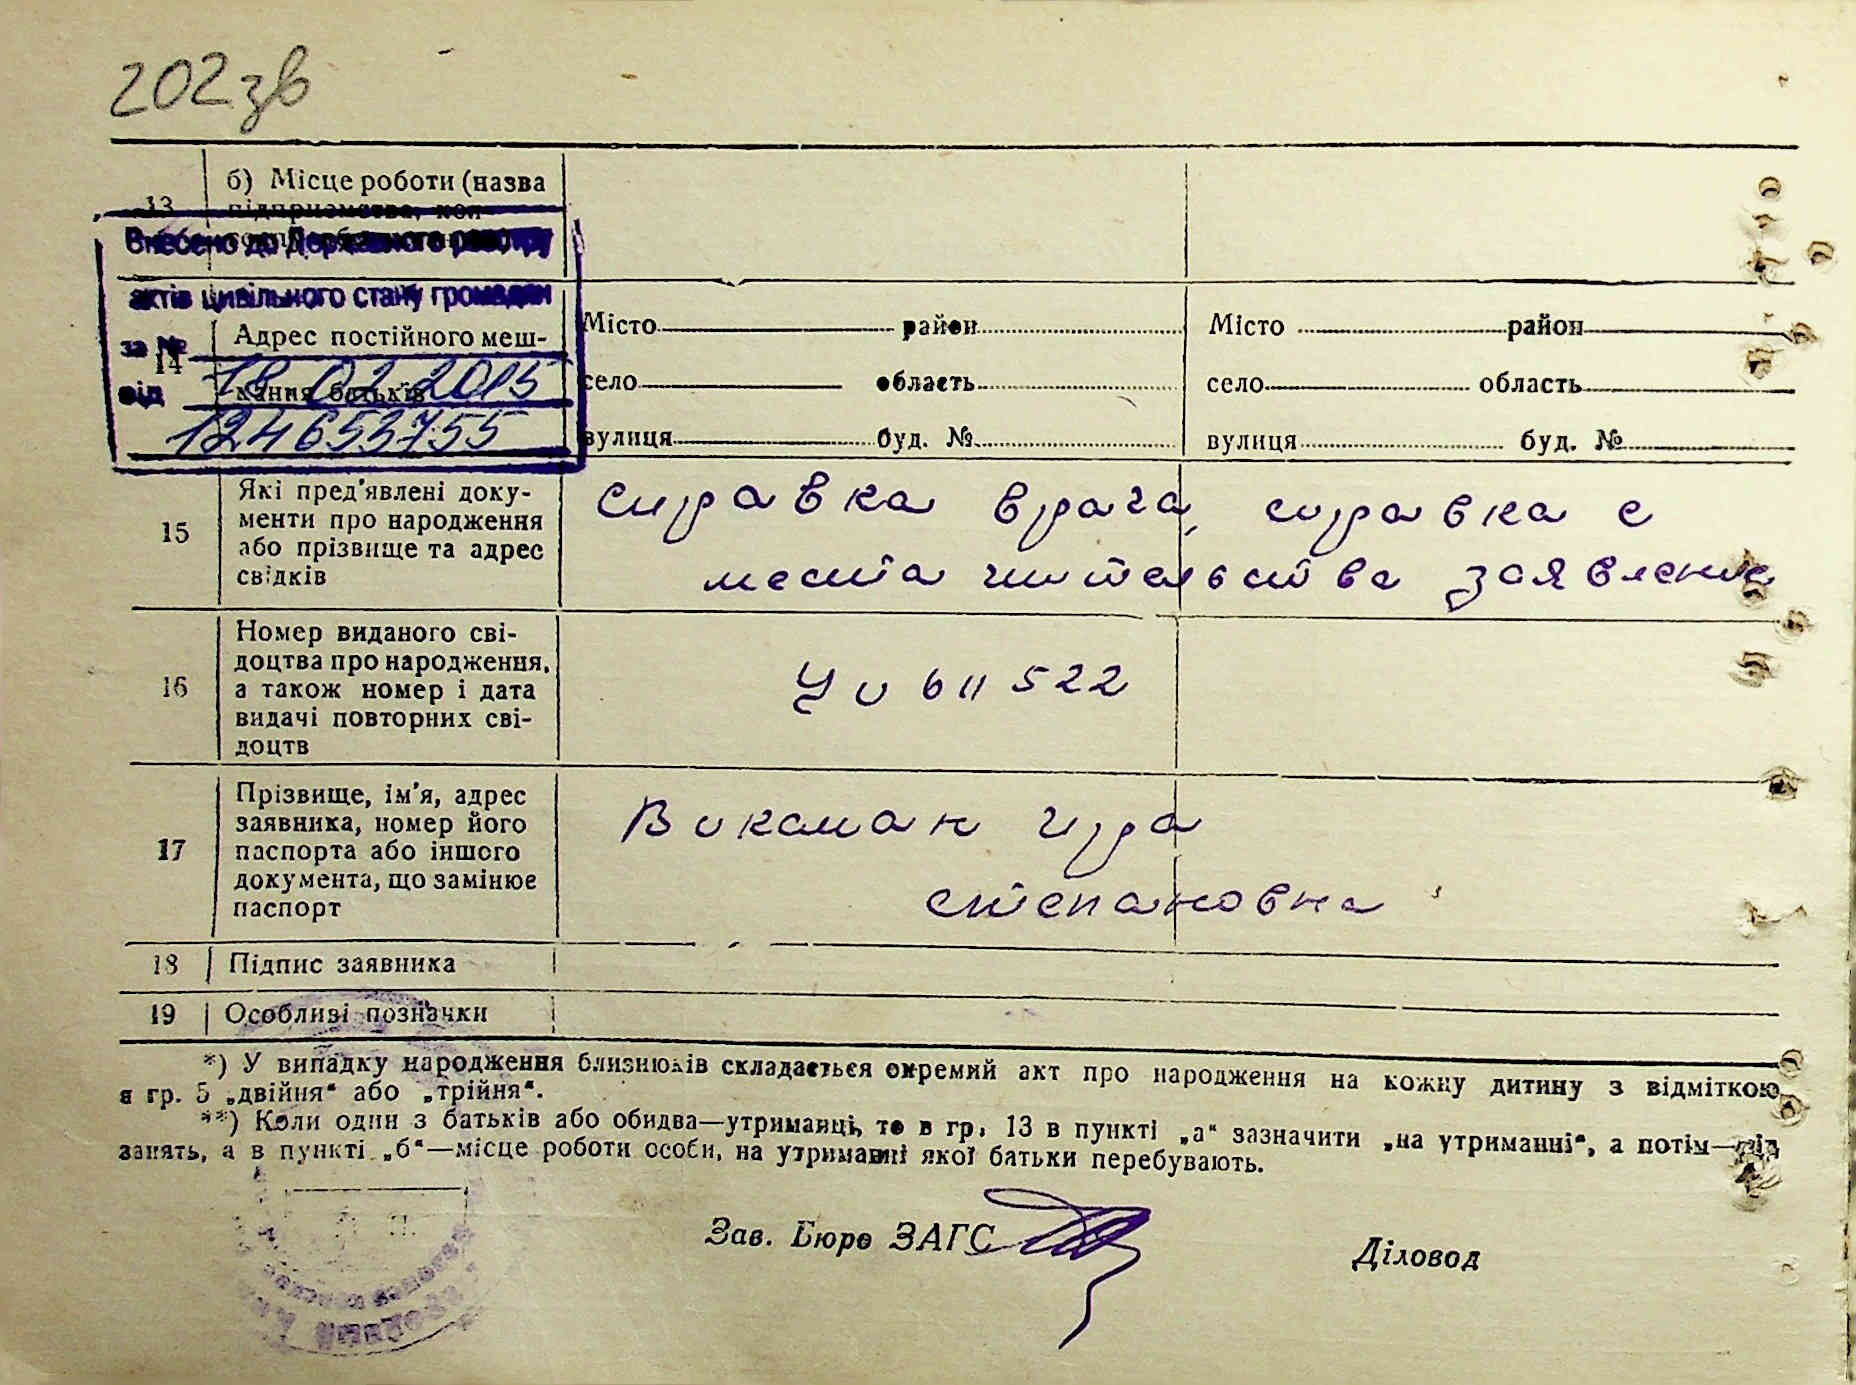 202зв
13
б) Місце роботи (назва
підприємства, кол-
Внесено до Державного реєстру
актів цивільного стану громадян
за №
18.02.2015
від
124653755
14
Адрес постійного меш-
кання батьків
Місто район
село область
вулиця буд. №
Місто район
село область
вулиця буд. №
15
Які пред'явлені доку-
менти про народження
або прізвище та адрес
свідків
справка врача, справка с
места жительства заявление
16
Номер виданого сві-
доцтва про народження,
а також номер і дата
видачі повторних сві-
доцтв
611522
17
Прізвище, ім'я, адрес
заявника, номер його
паспорта або іншого
документа, що замінює
паспорт
Виксман
степановна
18
Підпис заявника
19
Особливі позначки
*) У випадку народження близнюків складається окремий акт про народження на кожну дитину з відміткою
в гр. 5 „двійня“ або „трійня“.
**) Коли один з батьків або обидва—утриманці, то в гр. 13 в пункті „а“ зазначити „на утриманні“, а потім—рід
занять, а в пункті „б“—місце роботи особи, на утриманні якої батьки перебувають.
Зав. Бюро ЗАГС
Діловод